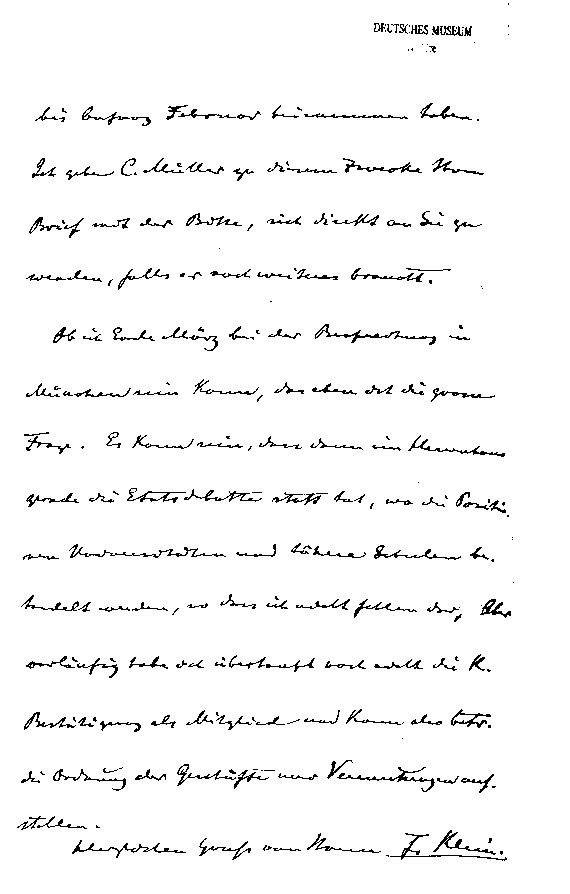 DEUTSCHES MUSEUM
bis Anfang Februar bekommen haben.
Ich gebe C. Müller zu diesem Zwecke Ihren
Brief mit der Bitte, sich direkt an Sie zu
wenden, falls er noch weiteres braucht.
Ob ich Ende März bei der Besprechung in
München sein kann, das eben ist die grosse
Frage. Es kann sein, dass dann im Herrenhaus
gerade die Etatsdebatte statt hat, wo die Positio-
nen Universitäten und höhere Schulen be-
handelt werden, so dass ich nicht fehlen darf. Aber
vorläufig habe ich überhaupt noch nicht die K.
Bestätigung als Mitglied und kann also betr.
die Ordnung der Geschäfte nur Vermutungen auf-
stellen.
Herzlichen Gruss von Ihrem F. Klein.